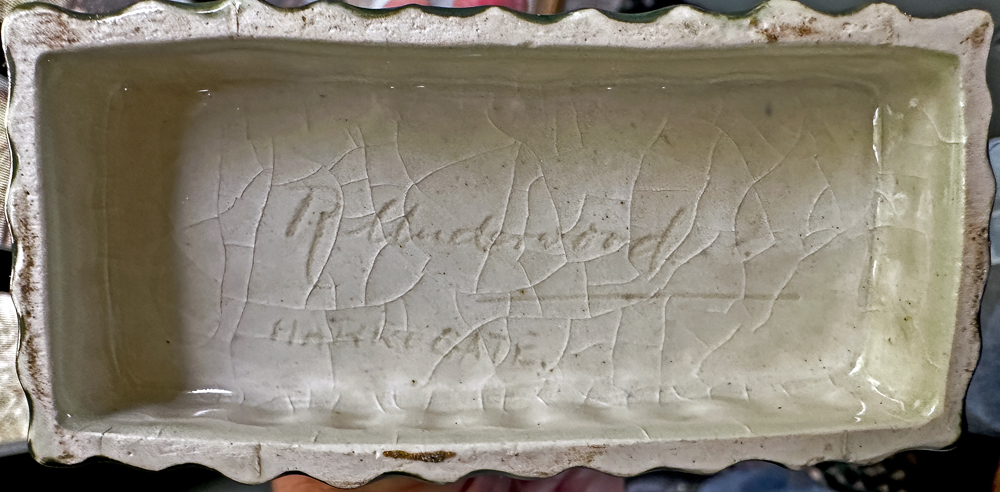 R. Underwood
HARROGATE.